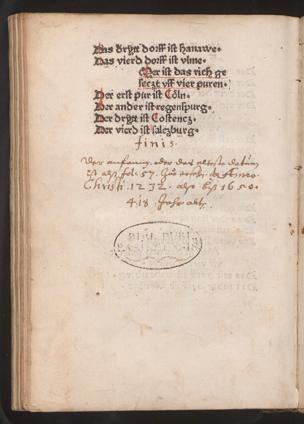 Das drytt dorff ist hanawe.
Das vierd dorff ist vlme.
Mer ist das rich ge
seczt vff vier puren.
Der erst pur ist Cöln.
Der ander ist regenspurg.
Der drytt ist Costencz.
Der vierd ist salczburg.
finis.
Der anfang, oder das elteste datum
ist als fol. 57. Anno
Christi. 1232. als biß 1650.
418. Jahr alt.
BIBL. PUBL.
BASILEENSIS